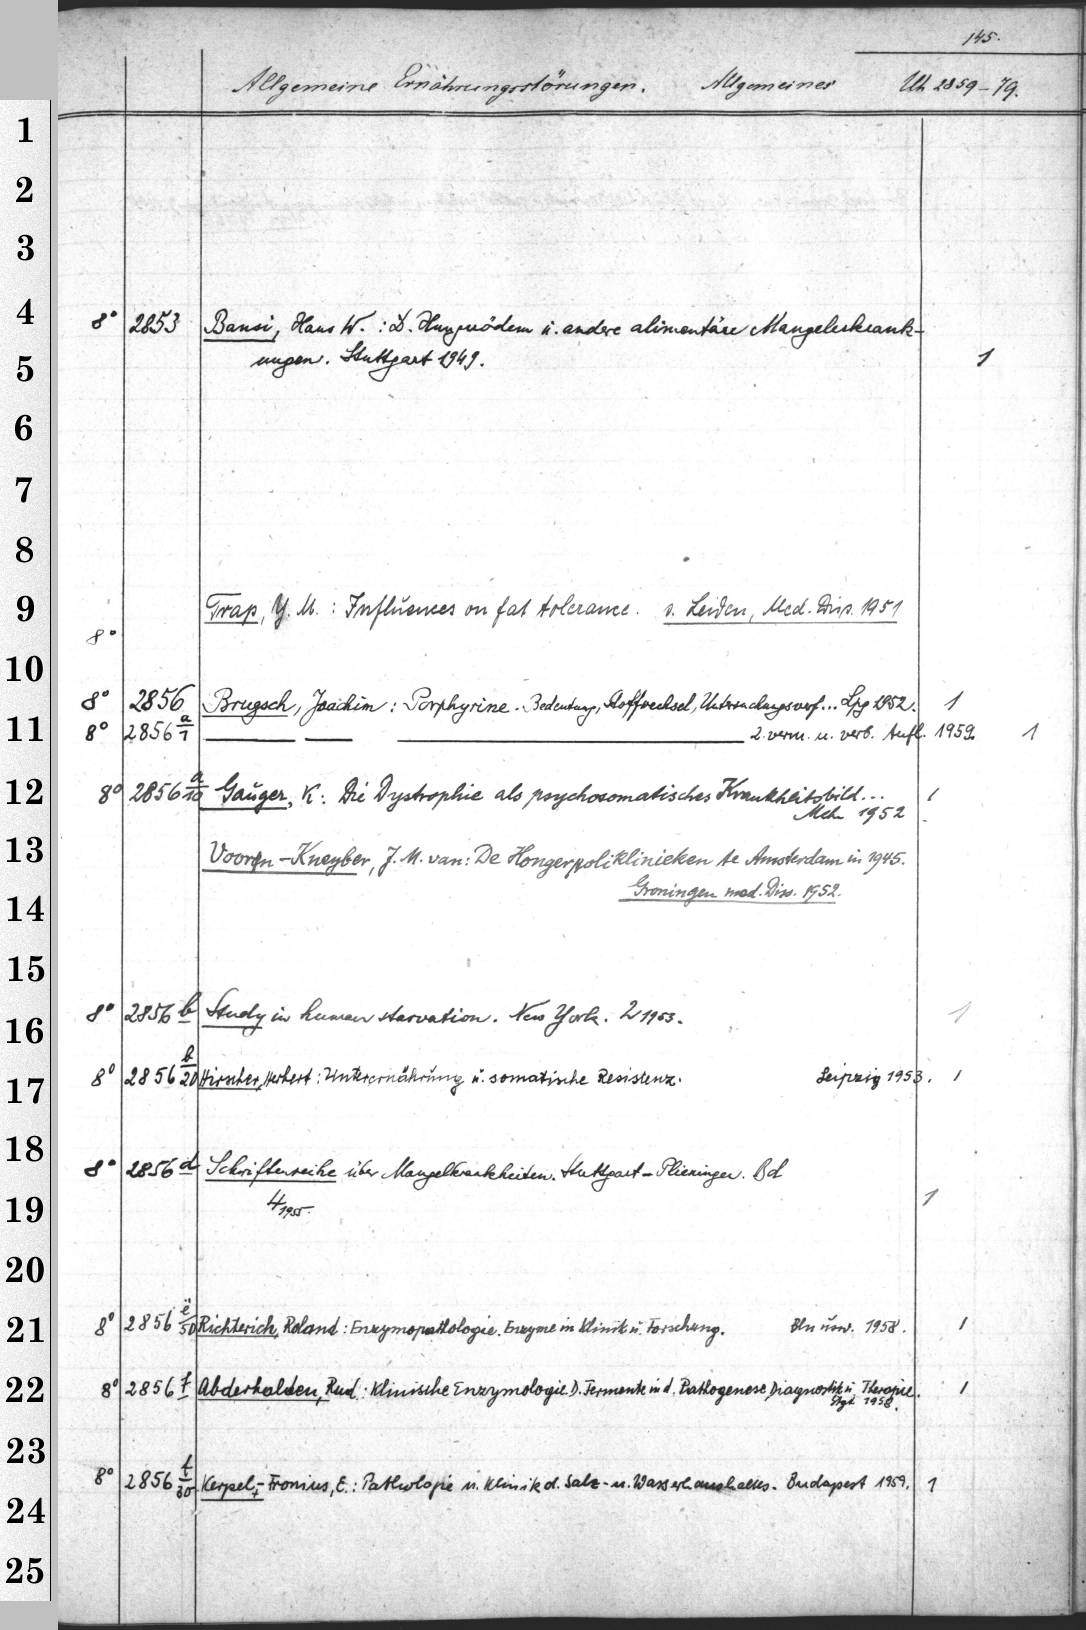 145.
Allgemeine Ernährungsstörungen. Allgemeines Uh 2859-79.
1
2
3
4 8° 2853 Bansi, Hans W. : D. Hungerödem u. andere alimentäre Mangelerkrank-
5 ungen. Stuttgart 1949. 1
6
7
8
9 Trap, Y. M. : Influences on fat tolerance. s. Leiden, Med. Diss. 1951
8°
10
8° 2856 Brugsch, Joachim : Porphyrine. Bedeutung, Stoffwechsel, Untersuchungsverf... Lpg 1952. 1
11 8° 2856 a/1 2. verm. u. verb. Aufl. 1959. 1
12 8° 2856 a/10 Gauger, K: Die Dystrophie als psychosomatisches Krankheitsbild... 1
Mchn 1952
13 Voorn-Kneyber, J. M. van: De Hongerpoliklinieken te Amsterdam in 1945.
14 Groningen med. Diss. 1952.
15
16 8° 2856 b Study in human starvation. New York. 2 1953. 1
17 8° 2856 b/20 Hirscher, Herbert : Unterernährung u. somatische Resistenz. Leipzig 1953. 1
18 8° 2856 d Schriftenreihe über Mangelkrankheiten. Stuttgart-Plieningen. Bd
19 4 1955. 1
20
21 8° 2856 e/50 Richterich, Roland : Enzymopathologie. Enzyme in Klinik u. Forschung. Bln usw. 1958. 1
22 8° 2856 f Abderhalden, Rud : Klinische Enzymologie. D. Fermente in d. Pathogenese, Diagnostik u. Therapie. 1
Stgt 1958.
23
8° 2856 f/30 Kerpel-Fronius, E. : Pathologie u. Klinik d. Salz- u. Wasserhaushaltes. Budapest 1959. 1
24
25